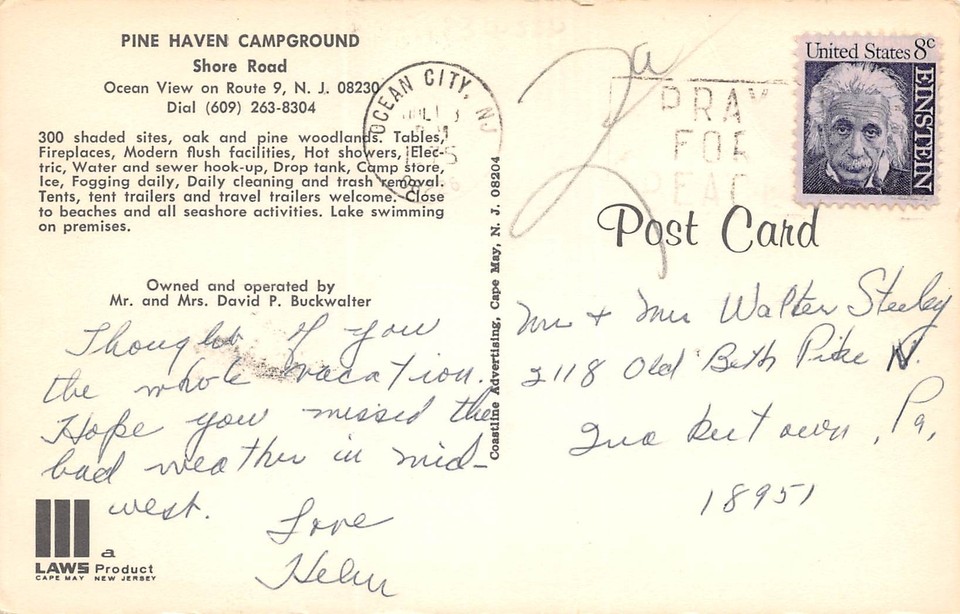 PINE HAVEN CAMPGROUND
Shore Road
Ocean View on Route 9, N. J. 08230
Dial (609) 263-8304
300 shaded sites, oak and pine woodlands. Tables,
Fireplaces, Modern flush facilities, Hot showers, Elec-
tric, Water and sewer hook-up, Drop tank, Camp store,
Ice, Fogging daily, Daily cleaning and trash removal.
Tents, tent trailers and travel trailers welcome. Close
to beaches and all seashore activities. Lake swimming
on premises.
Owned and operated by
Mr. and Mrs. David P. Buckwalter
Thought of you
the whole vacation.
Hope you missed the
bad weather in mid-
west.
Love
Helen
LAWS a Product
CAPE MAY NEW JERSEY
Coastline Advertising, Cape May, N. J. 08204
OCEAN CITY, NJ
PRAY
FOR
PEACE
United States 8c
EINSTEIN
Post Card
Mr + Mrs Walter Steeley
2118 Old Beth Pike N.
Quakertown, Pa,
18951